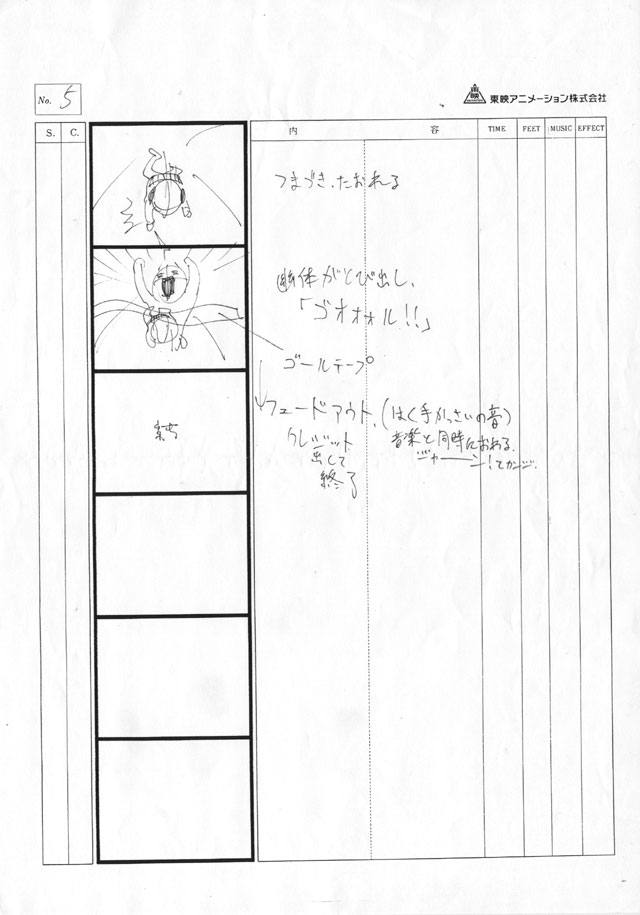 No. 5
東映
東映アニメーション株式会社
S. C. 内 容 TIME FEET MUSIC EFFECT
つまづき、たおれる
幽体がとび出し、
「ゴオォォル!!」
ゴールテープ
フェードアウト、(はく手かっさいの音)
クレジット
出して
終了
音楽と同時におわる。
ジャーーン!てカンジ.